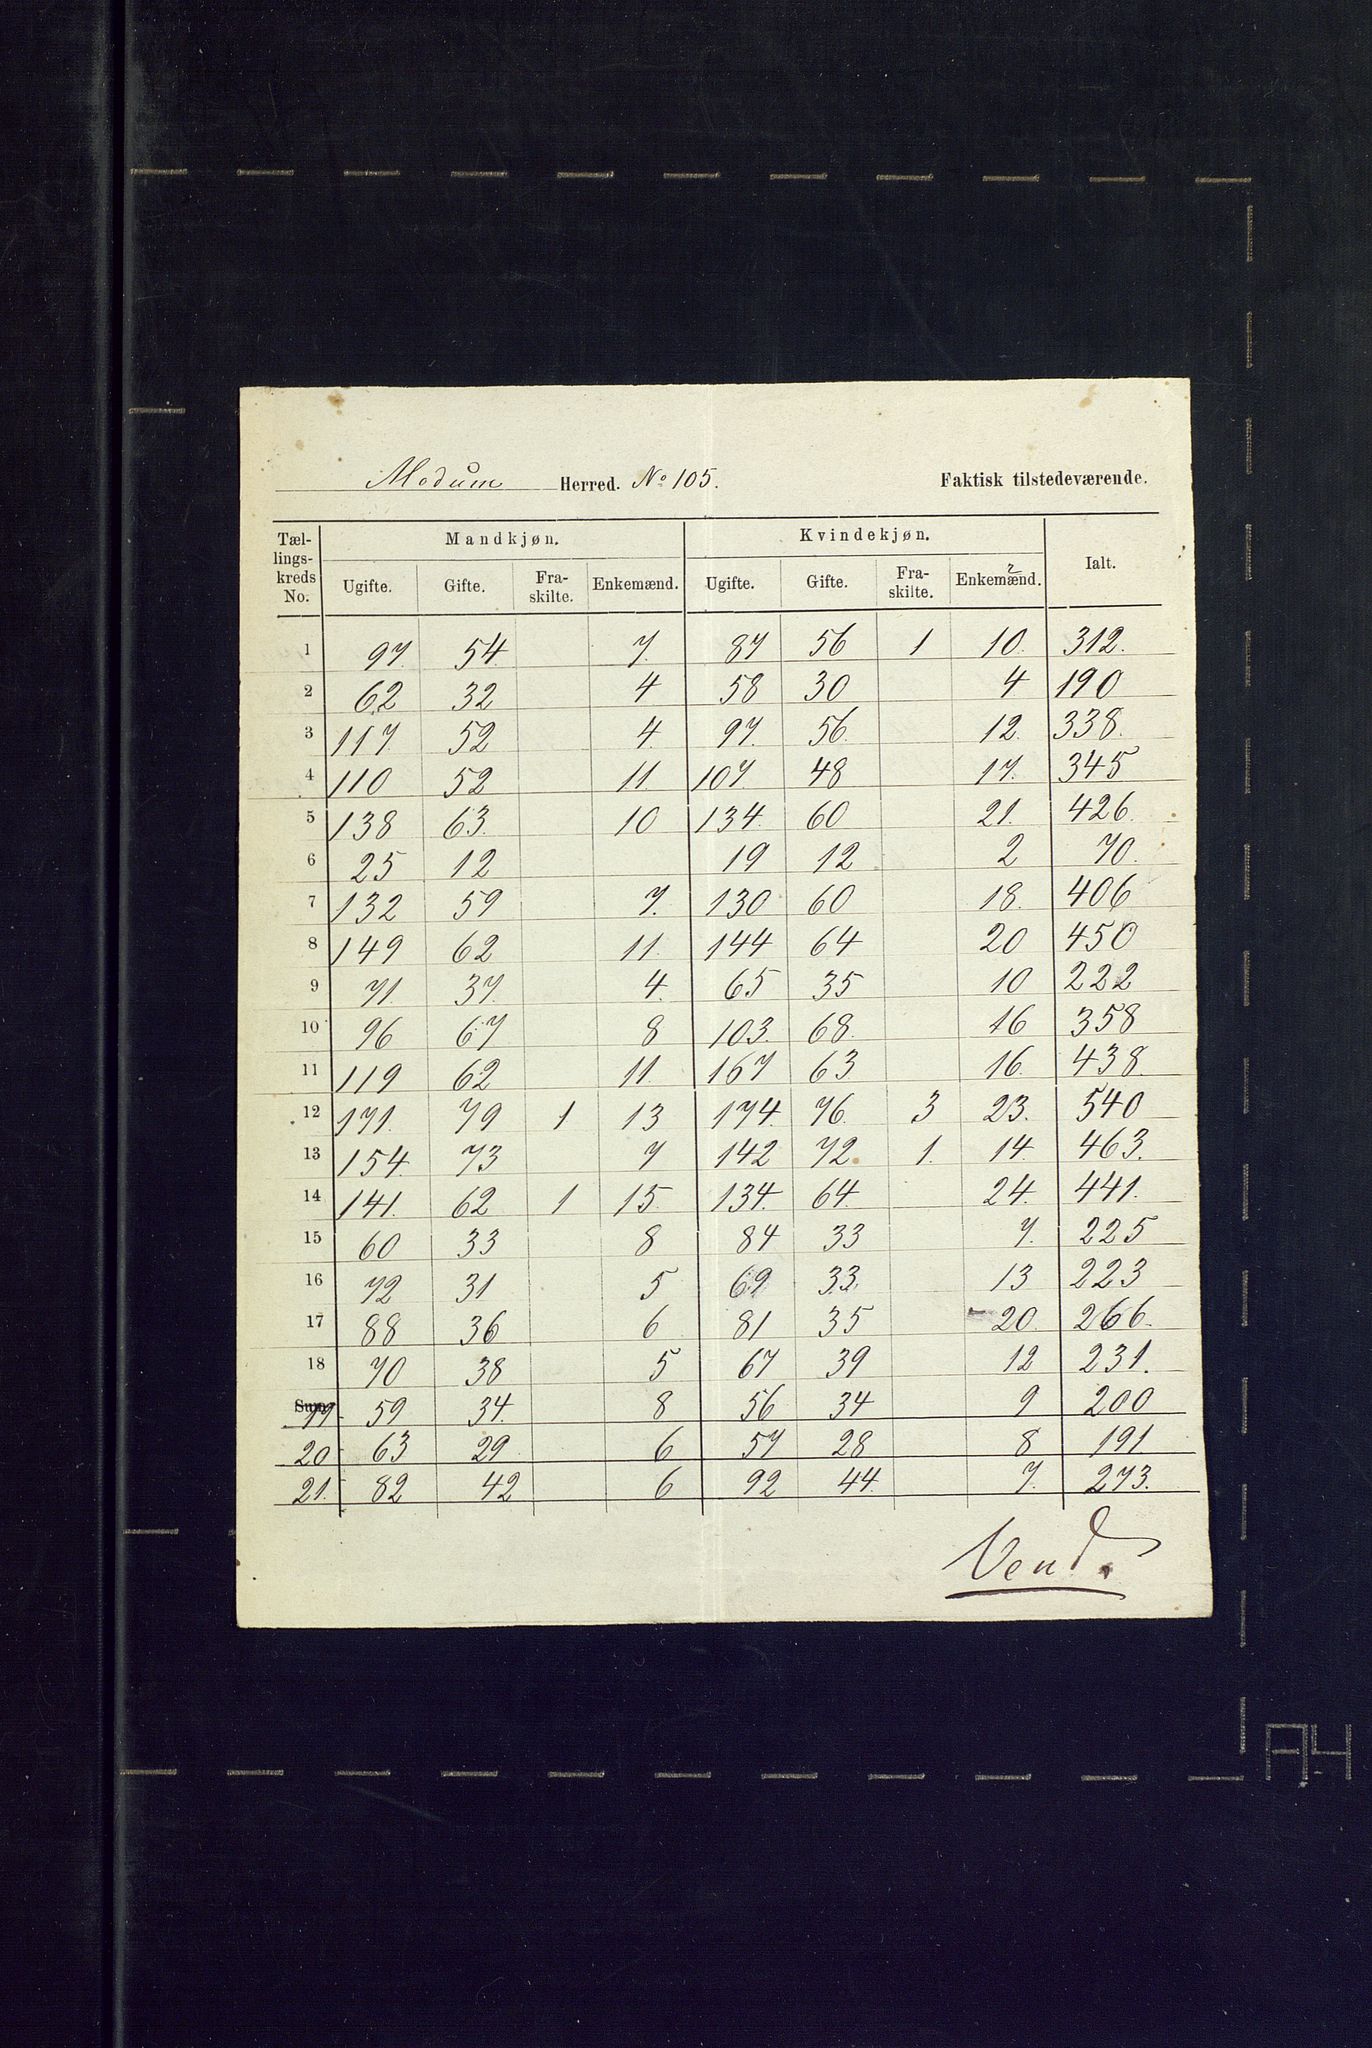 Modum Herred. No 105. Faktisk tilstedeværende.
Tællingskreds No. Mandkjøn. Kvindekjøn. Ialt.
Ugifte. Gifte. Fraskilte. Enkemænd. Ugifte. Gifte. Fraskilte. Enkemænd.
1 97 54 7. 87 56 1 10. 312.
2 62 32 4 58 30 4 190
3 117 52 4. 97. 56. 12. 338.
4 110 52 11. 107. 48 17. 345
5 138 63. 10 134. 60 21. 426.
6 25 12 19 12 2 70.
7 132 59 7. 130 60 18. 406
8 149 62 11. 144 64 20 450
9 71 37. 4. 65 35 10 222
10 96 67 8 103. 68. 16 358
11 119 62 11. 167 63 16. 438.
12 171. 79 1 13 174. 76. 3 23. 540
13 154. 73 7 142 72. 1. 14. 463.
14 141. 62 1 15. 134. 64. 24. 441.
15 60 33 8 84 33 7. 225
16 72 31 5 69 33. 13 223
17 88 36 6 81 35 20. 266.
18 70 38 5 67 39 12 231.
Sum 19 59 34. 8 56 34 9 200
20 63 29. 6 57 28 8 191
21. 82 42 6 92 44. 7. 273.
Vend.
A4